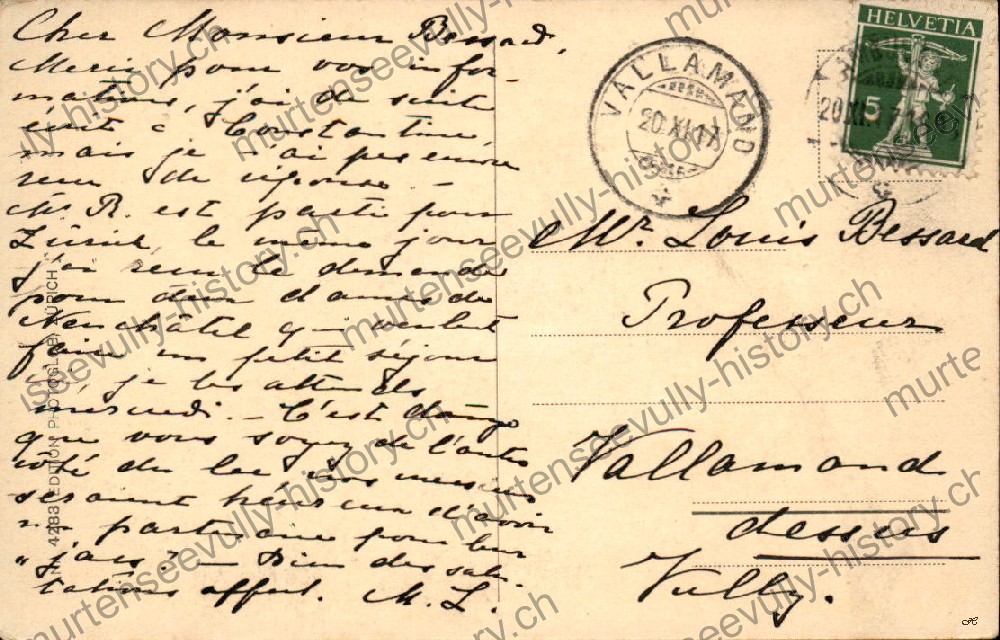 Cher Monsieur Bessard,
Merci pour vos infor-
mations, j'ai de suite
écrit à Constantine
mais je n'ai pas encore
reçu de réponse –
Mr R. est partie pour
Zürich, le même jour
j'ai reçu la demande
pour deux dames de
Neuchâtel qui veulent
faire un petit séjour
ici, je les attends
mercredi. – C'est
que vous soyez de l'autre
côté du lac
seraient heureux d'avoir
un partenaire pour leur
"jass". – Bien des salu-
tations affect. M. L.
42831 EDITION PHOTOGLOB ZÜRICH
VALLAMAND
20.XI.17
HELVETIA
5
20.XI.17
Mr. Louis Bessard
Professeur
Vallamand
dessus
Vully.
murtenseevully-history.ch